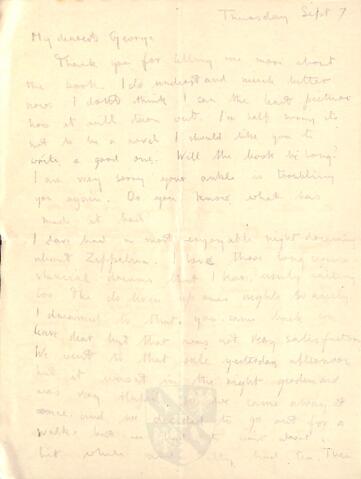 Thursday Sept 7
My dearest George
Thank you for telling me more about
the book. I do understand much better
now I don't think I can the least picture
how it will turn out. I'm half sorry it's
not to be a novel I should like you to
write a good one. Will the book be long?
I am very sorry your ankle is troubling
you again. Do you know what has
made it bad
I have had a most enjoyable night dreaming
about Zeppelins. I love those long
dreams that I have
too. The do liven up ones nights so nicely.
I dreamed to that you came back on
leave dear but that was not very satisfactory
We went to that sale yesterday afternoon
but it wasn't in the right garden and
was very so we came away at
once and we decided to go out for a
walk but we about a
bit while and had tea. Then